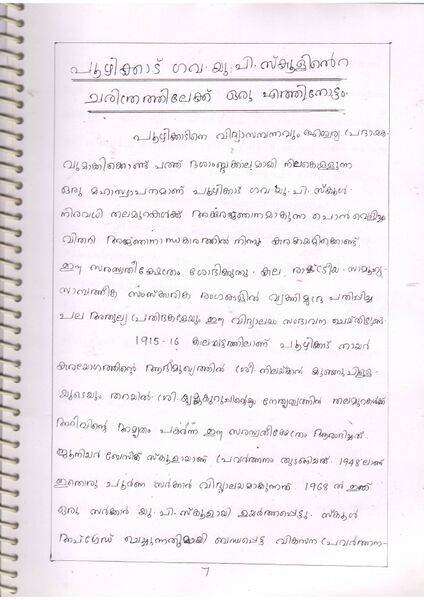 പൂഴിക്കാട് ഗവ. യു. പി. സ്കൂളിന്റെ
ചരിത്രത്തിലേക്ക് ഒരു എത്തിനോട്ടം.
പൂഴിക്കാടിനെ വിദ്യാസമ്പന്നവും ഐശ്വര്യ പ്രദായക-
വുമാക്കിക്കൊണ്ട് പത്ത് ദശാബ്ദക്കാലമായി നിലകൊള്ളുന്ന
ഒരു മഹാസ്ഥാപനമാണ് പൂഴിക്കാട് ഗവ. യു. പി. സ്കൂൾ.
നിരവധി തലമുറകൾക്ക് അക്ഷരജ്ഞാനമാകുന്ന പൊൻ വെളിച്ചം
വിതറി അജ്ഞാനാന്ധകാരത്തിൽ നിന്നും കരകയറ്റിക്കൊണ്ട്
ഈ സരസ്വതീക്ഷേത്രം ശോഭിക്കുന്നു. കലാ, രാഷ്ട്രീയ - സാമൂഹ്യ-
സാമ്പത്തിക സാംസ്കാരിക രംഗങ്ങളിൽ വ്യക്തിമുദ്ര പതിപ്പിച്ച
പല അതുല്യ പ്രതിഭകളെയും ഈ വിദ്യാലയം സംഭാവന ചെയ്തിട്ടുണ്ട്.
1915-16 കാലഘട്ടത്തിലാണ് പൂഴിക്കാട് നായർ
കരയോഗത്തിന്റെ ആഭിമുഖ്യത്തിൽ ശ്രീ. നീലയ്ക്കാൽ കുഞ്ഞുപിള്ള-
യുടെയും തറയിൽ ശ്രീ. കൃഷ്ണകുറുപ്പിന്റെയും നേതൃത്വത്തിൽ തലമുറകൾക്ക്
അറിവിന്റെ അമൃതം പകർന്ന ഈ സരസ്വതീക്ഷേത്രം ആരംഭിച്ചത്.
ജൂനിയർ ബേസിക് സ്കൂളായാണ് പ്രവർത്തനം തുടങ്ങിയത്. 1948 ലാണ്
ഇതൊരു പൂർണ്ണ സർക്കാർ വിദ്യാലയമാകുന്നത്. 1968 ൽ ഇത്
ഒരു സർക്കാർ യു. പി. സ്കൂളായി ഉയർത്തപ്പെട്ടു. സ്കൂൾ
അപ്ഗ്രേഡ് ചെയ്യുന്നതുമായി ബന്ധപ്പെട്ട വികസന പ്രവർത്തന-
7